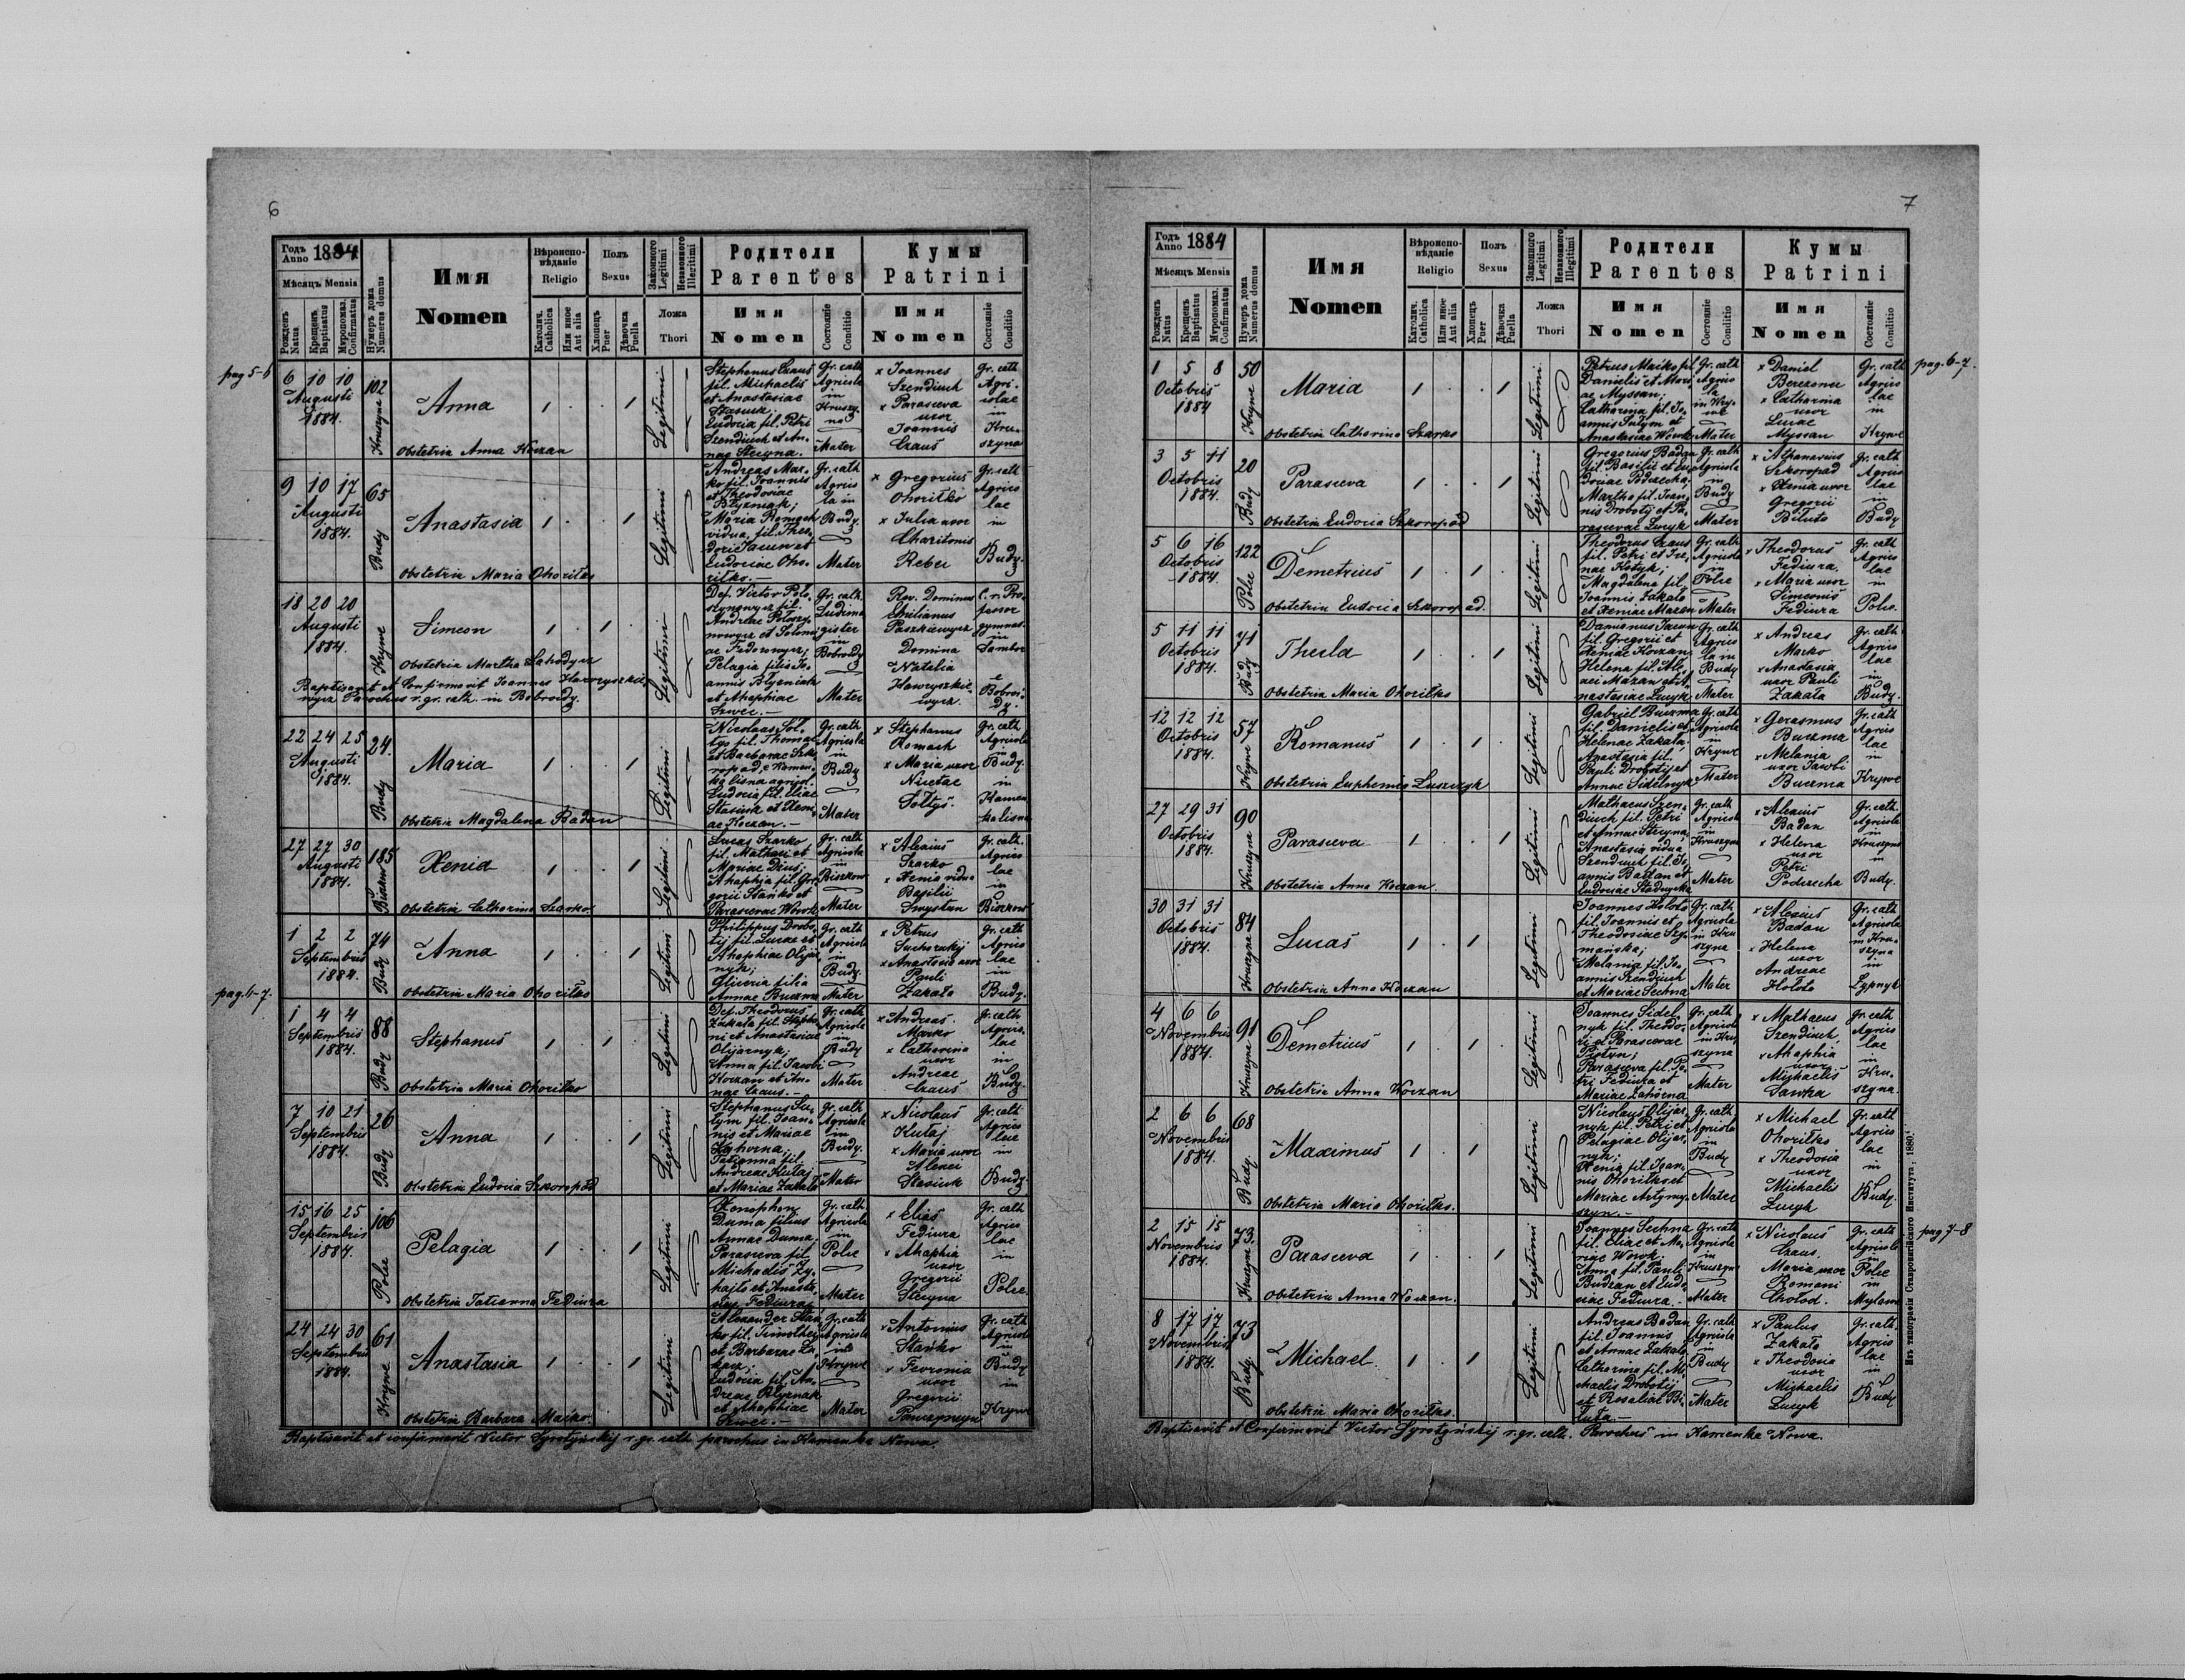 6
Годъ Anno 1884
Мѣсяцъ Mensis
Рожденъ Natus
Крещенъ Baptisatus
Мѵропомаз. Confirmatus
Нумеръ дома Numerus domus
Имя
Nomen
Вѣроиспо-
вѣданіе
Religio
Католич. Catholica
Или иное Aut alia
Полъ
Sexus
Хлопець Puer
Дѣвочка Puella
Законного Legitimi
Незаконного Illegitimi
Ложа
Thori
Родители
Parentes
Имя
Nomen
Состояніе Conditio
Кумы
Patrini
Имя
Nomen
Состояніе Conditio
pag 5-6
6 10 10
Augusti
1884.
102
Hruszyna
Anna
Obstetrix Anna Korzan
Legitimi
Stephanus Czaus
fil. Michaelis
et Anastasiae
Stasiuk;
Eudocia fil. Petri
Szendiuch et An-
nae Steryna.
Gr. cath
Agricola
in
Hruszy-
na
Mater
x Joannes
Szendiuch
x Parasceva
uxor
Joannis
Czaus
Gr. cath
Agri-
colae
in
Hru-
szyna
9 10 17
Augusti
1884.
65
Budy
Anastasia
Obstetrix Maria Ohoritko
Legitimi
Andreas Mar-
ko fil. Joannis
et Theodosiae
Błyzniak;
Maria Romach
vidua, fil. Theo-
dori Jacun et
Eudociae Oho-
ritko.—
Gr. cath
Agrico
la in
Budy.
Mater
x Gregorius
Ohoritko
x Julia uxor
Charitonis
Reber
Gr. cath
Agrico
lae
in
Budy.
18 20 20
Augusti
1884.
Krywe
Simeon
Obstetrix Martha Lahodycz
Baptisavit et Confirmavit Joannes Hawryszkie-
wycz Parochus r. gr. cath. in Bobroidy.
Legitimi
Def. Victor Poło-
szynowycz fil.
Andreae Połoszy-
nowycz et Salome-
ae Fedorowycz;
Pelagia filia Jo-
annis Błyzniak
et Ahaphiae
Szwec.—
Gr. cath.
Ludima
gister
in
Bobroidy
Mater
Rev. Dominus
Emilianus
Paszkiewycz
Domina
Natalia
Hawryszkie-
wycz
C. r. Pro-
fessor
gymnas.
in
Sambor
Bobroi-
dy.
22 24 25
Augusti
1884.
24.
Budy
Maria
Obstetrix Magdalena Badan
Legitimi
Nicolaus Soł-
tys fil. Thomae
et Barbarae Szko-
ropad, e Kamen-
ka lisna agricol.
Eudocia fil. Eliae
Stasiuk et Xeni-
ae Korzan.—
Gr. cath
Agricola
in
Budy
Mater
x Stephanus
Romach
x Maria uxor
Nicetae
Sołtys.
Gr. cath
Agricola
in
Budy.
in
Kamen
ka lisna
27 27 30
Augusti
1884.
185
Biszkow
Xenia
Obstetrix Catharina Szarko.
Legitimi
Lucas Szarko
fil. Mathaei et
Mariae Dzus;
Ahaphia fil. Gre-
gorii Stańko et
Parascevae Wowk
Gr. cath
Agricola
in
Biszkow
Mater
x Alexius
Szarko
x Xenia vidua
Basilii
Smystun
Gr. cath.
Agrico
lae
in
Biszkow
1 2 2
Septembris
1884.
74
Budy
Anna
Obstetrix Maria Ohoritko
Legitimi
Philippus Drobo-
tij fil. Lucae et
Ahaphiae Olijar-
nyk;
Gliceria filia
Annae Buczma
Gr. cath
Agricola
in
Budy.
Mater
x Petrus
Sucharskij
x Anastasia uxor
Pauli
Zakała
Gr. cath
Agrico
lae
in
Budy.
pag. 6-7.
1 4 4
Septembris
1884.
88
Budy
Stephanus
Obstetrix Maria Ohoritko
Legitimi
Def. Theodorus
Zakała fil. Stepha-
ni et Anastasiae
Olijarnyk;
Anna fil. Jacobi
Korzan et An-
nae Czaus.—
Gr. cath
Agricola
in
Budy
Mater
x Andreas
Marko
x Catharina
uxor
Andreae
Czaus
Gr. cath
Agrico-
lae
in
Budy.
7 10 21
Septembris
1884.
26
Budy
Anna
Obstetrix Eudocia Szkoropad
Legitimi
Stephanus Su-
łym fil. Joan-
nis et Mariae
Zahorna;
Tatianna fil.
Andreae Kutaj
et Mariae Zakała
Gr. cath
Agricola
in
Budy.
Mater
x Nicolaus
Kutaj
x Maria uxor
Alexii
Stasiuk
Gr. cath
Agrico
lae
in
Budy
15 16 25
Septembris
1884.
106
Polce
Pelagia
Obstetrix Tatianna Fediura
Legitimi
Xenophon
Duma filius
Annae Duma;
Parasceva fil.
Michaelis Zy-
hajło et Anasta-
siae Fediura
Gr. cath
Agricola
in
Polce
Mater
x Elias
Fediura
x Ahaphia
uxor
Gregorii
Steryna
Gr. cath
Agrico
lae
in
Polce.
24 24 30
Septembris
1884.
61
Krywe
Anastasia
Obstetrix Barbara Maćko.
Legitimi
Alexander Stań-
ko fil. Timothei
et Barbarae
Eudocia fil. An-
dreae Błyzniak
et Ahaphiae
Szwec.—
Gr. cath
Agricola
in
Krywe
Mater
x Antonius
Stańko
x Fevronia
uxor
Gregorii
Gr. cath
Agricola
in
Budy
in
Krywe
Baptisavit et confirmavit Victor Syrotyńskij r. gr. cath. parochus in Kamenka Nowa.
7
Годъ Anno 1884
Мѣсяцъ Mensis
Рожденъ Natus
Крещенъ Baptisatus
Мѵропомаз. Confirmatus
Нумеръ дома Numerus domus
Имя
Nomen
Вѣроиспо-
вѣданіе
Religio
Католич. Catholica
Или иное Aut alia
Полъ
Sexus
Хлопець Puer
Дѣвочка Puella
Законного Legitimi
Незаконного Illegitimi
Ложа
Thori
Родители
Parentes
Имя
Nomen
Состояніе Conditio
Кумы
Patrini
Имя
Nomen
Состояніе Conditio
pag. 6-7.
1 5 8
Octobris
1884
50
Krywe
Maria
Obstetrix Catharina Szarko
Legitimi
Petrus Maćko fil.
Danielis et Mari-
ae Myssan;
Catharina fil. Jo-
annis Sułym et
Anastasiae Wowk
Gr. cath
Agrico
la
in Kry-
we
Mater
x Daniel
x Catharina
uxor
Lucae
Myssan
Gr. cath
Agrico
lae
in
Krywe
3 5 11
Octobris
1884.
20
Budy
Parasceva
Obstetrix Eudocia Szkoropad
Legitimi
Gregorius Badan
fil. Basilii et Eu-
dociae Poderecha;
Martha fil. Joan-
nis Drobotij et Pa-
rascevae Lucyk
Gr. cath
Agricola
in
Budy
Mater
x Athanasius
Szkoropad
x Xenia uxor
Gregorii
Biłuta
Gr. cath
Agrico
lae
in
Budy
5 6 16
Octobris
1884.
122
Polce
Demetrius
Obstetrix Eudocia Szkoropad.
Legitimi
Theodorus Czaus
fil. Petri et Ire-
nae Kotyk;
Magdalena fil.
Joannis Zakała
et Xeniae Mazan
Gr. cath
Agricola
in
Polce
Mater
x Theodorus
Fediura.
x Maria uxor
Simeonis
Fediura
Gr. cath
Agrico
lae
in
Polce.
5 11 11
Octobris
1884.
71
Budy
Thecla
Obstetrix Maria Ohoritko
Legitimi
Damianus Jacun
fil. Gregorii et
Xeniae Korzan;
Helena fil. Ale-
xii Mazan et A-
nastasiae Lucyk
Gr. cath
Agrico
la in
Budy
Mater
x Andreas
Marko
x Anastasia
uxor Pauli
Zakała
Gr. cath
Agrico
lae
in
Budy.
12 12 12
Octobris
1884.
57
Krywe
Romanus
Obstetrix Euphemia Luszczyk
Legitimi
Gabriel Buczma
fil. Danielis et
Helenae Zakała;
Anastasia fil.
Pauli Drobotij et
Annae Sidelnyk
Gr. cath
Agricola
in
Krywe
Mater
x Gerasmus
Buczma
x Melania
uxor Jacobi
Buczma
Gr. cath
Agrico
lae
in
Krywe
27 29 31
Octobris
1884.
90
Hruszyna
Parasceva
Obstetrix Anna Korzan.
Legitimi
Mathaeus Szen-
diuch fil. Petri
et Annae Steryna;
Anastasia vidua
Szendiuch fil. Jo-
annis Badan et
Eudociae Stadnycka
Gr. cath
Agricola
in
Hruszyna
Mater
x Alexius
Badan
x Helena
uxor
Petri
Poderecha
Gr. cath.
Agricola
in
Hruszyna
in
Budy.
30 31 31
Octobris
1884.
84
Hruszyna
Lucas
Obstetrix Anna Korzan
Legitimi
Joannes Hołoto
fil. Joannis et
Theodosiae Szy-
mańska;
Melania fil. Jo-
annis Szendiuch
et Mariae Sechna
Gr. cath
Agricola
in Hru
szyna
Mater
x Alexius
Badan
x Helena
uxor
Andreae
Hołoto
Gr. cath
Agricola
in Hru-
szyna
in
Lypnyk
4 6 6
Novembris
1884.
91
Hruszyna
Demetrius
Obstetrix Anna Korzan
Legitimi
Joannes Sidel
nyk fil. Theodo-
ri et Parascevae
Parasceva fil. Pe-
tri Fediura et
Mariae Zahorna
Gr. cath
Agricola
in Hru
szyna
Mater
x Mathaeus
Szendiuch,
x Ahaphia
uxor
Michaelis
Sawka
Gr. cath
Agrico
lae
in
Hru-
szyna.
2 6 6
Novembris
1884.
68
Budy.
Maximus
Obstetrix Maria Ohoritko.
Legitimi
Nicolaus Olijar
nyk fil. Petri et
Pelagiae Olijar-
nyk;
Xenia fil. Joan-
nis Ohoritko et
Mariae Artymy-
szyn.—
Gr. cath
Agricola
in
Budy
Mater
x Michael
Ohoritko
x Theodosia
uxor
Michaelis
Lucyk
Gr. cath
Agrico
lae
in
Budy.
pag 7-8
2 15 15
Novembris
1884.
73.
Hruszyna
Parasceva
Obstetrix Anna Korzan.
Legitimi
Joannes Sechna
fil. Eliae et Ma-
riae Wowk;
Anna fil. Pauli
Budzan et Eudo-
ciae Fediura.—
Gr. cath
Agricola
in
Hruszyna
Mater
x Nicolaus
Czaus.
Maria uxor
Romani
Chołod.
Gr. cath
Agricola
in
Polce
in
8 17 17
Novembris
1884.
73
Budy.
Michael.
Obstetrix Maria Ohoritko.
Legitimi
Andreas Badan
fil. Joannis
et Annae Zakała;
Catharina fil. Mi-
chaelis Drobotij
et Rosaliae Bi-
łuta.—
Gr. cath
Agricola
in
Budy
Mater
x Paulus
Zakała
x Theodosia
uxor
Michaelis
Lucyk
Gr. cath.
Agrico
lae
in
Budy
Baptisavit et Confirmavit Victor Syrotyńskij r. gr. cath. Parochus in Kamenka Nowa.
Изъ типографіи Ставропигійского Института: 1880.